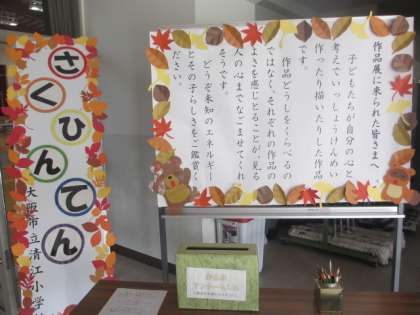 さくひんてん
大阪市立清江小学校
作品展に来られた皆さまへ。
子どもたちが自分の心と
考えでいっしょうけんめい
作ったり描いたりした作品
です。
作品どうしをくらべるの
ではなく、それぞれの作品の
よさを感じとることが、見る
人の心までなごませてくれ
そうです。
どうぞ未知のエネルギー
とその子らしさをご鑑賞く
ださい。
作品展
アンケート